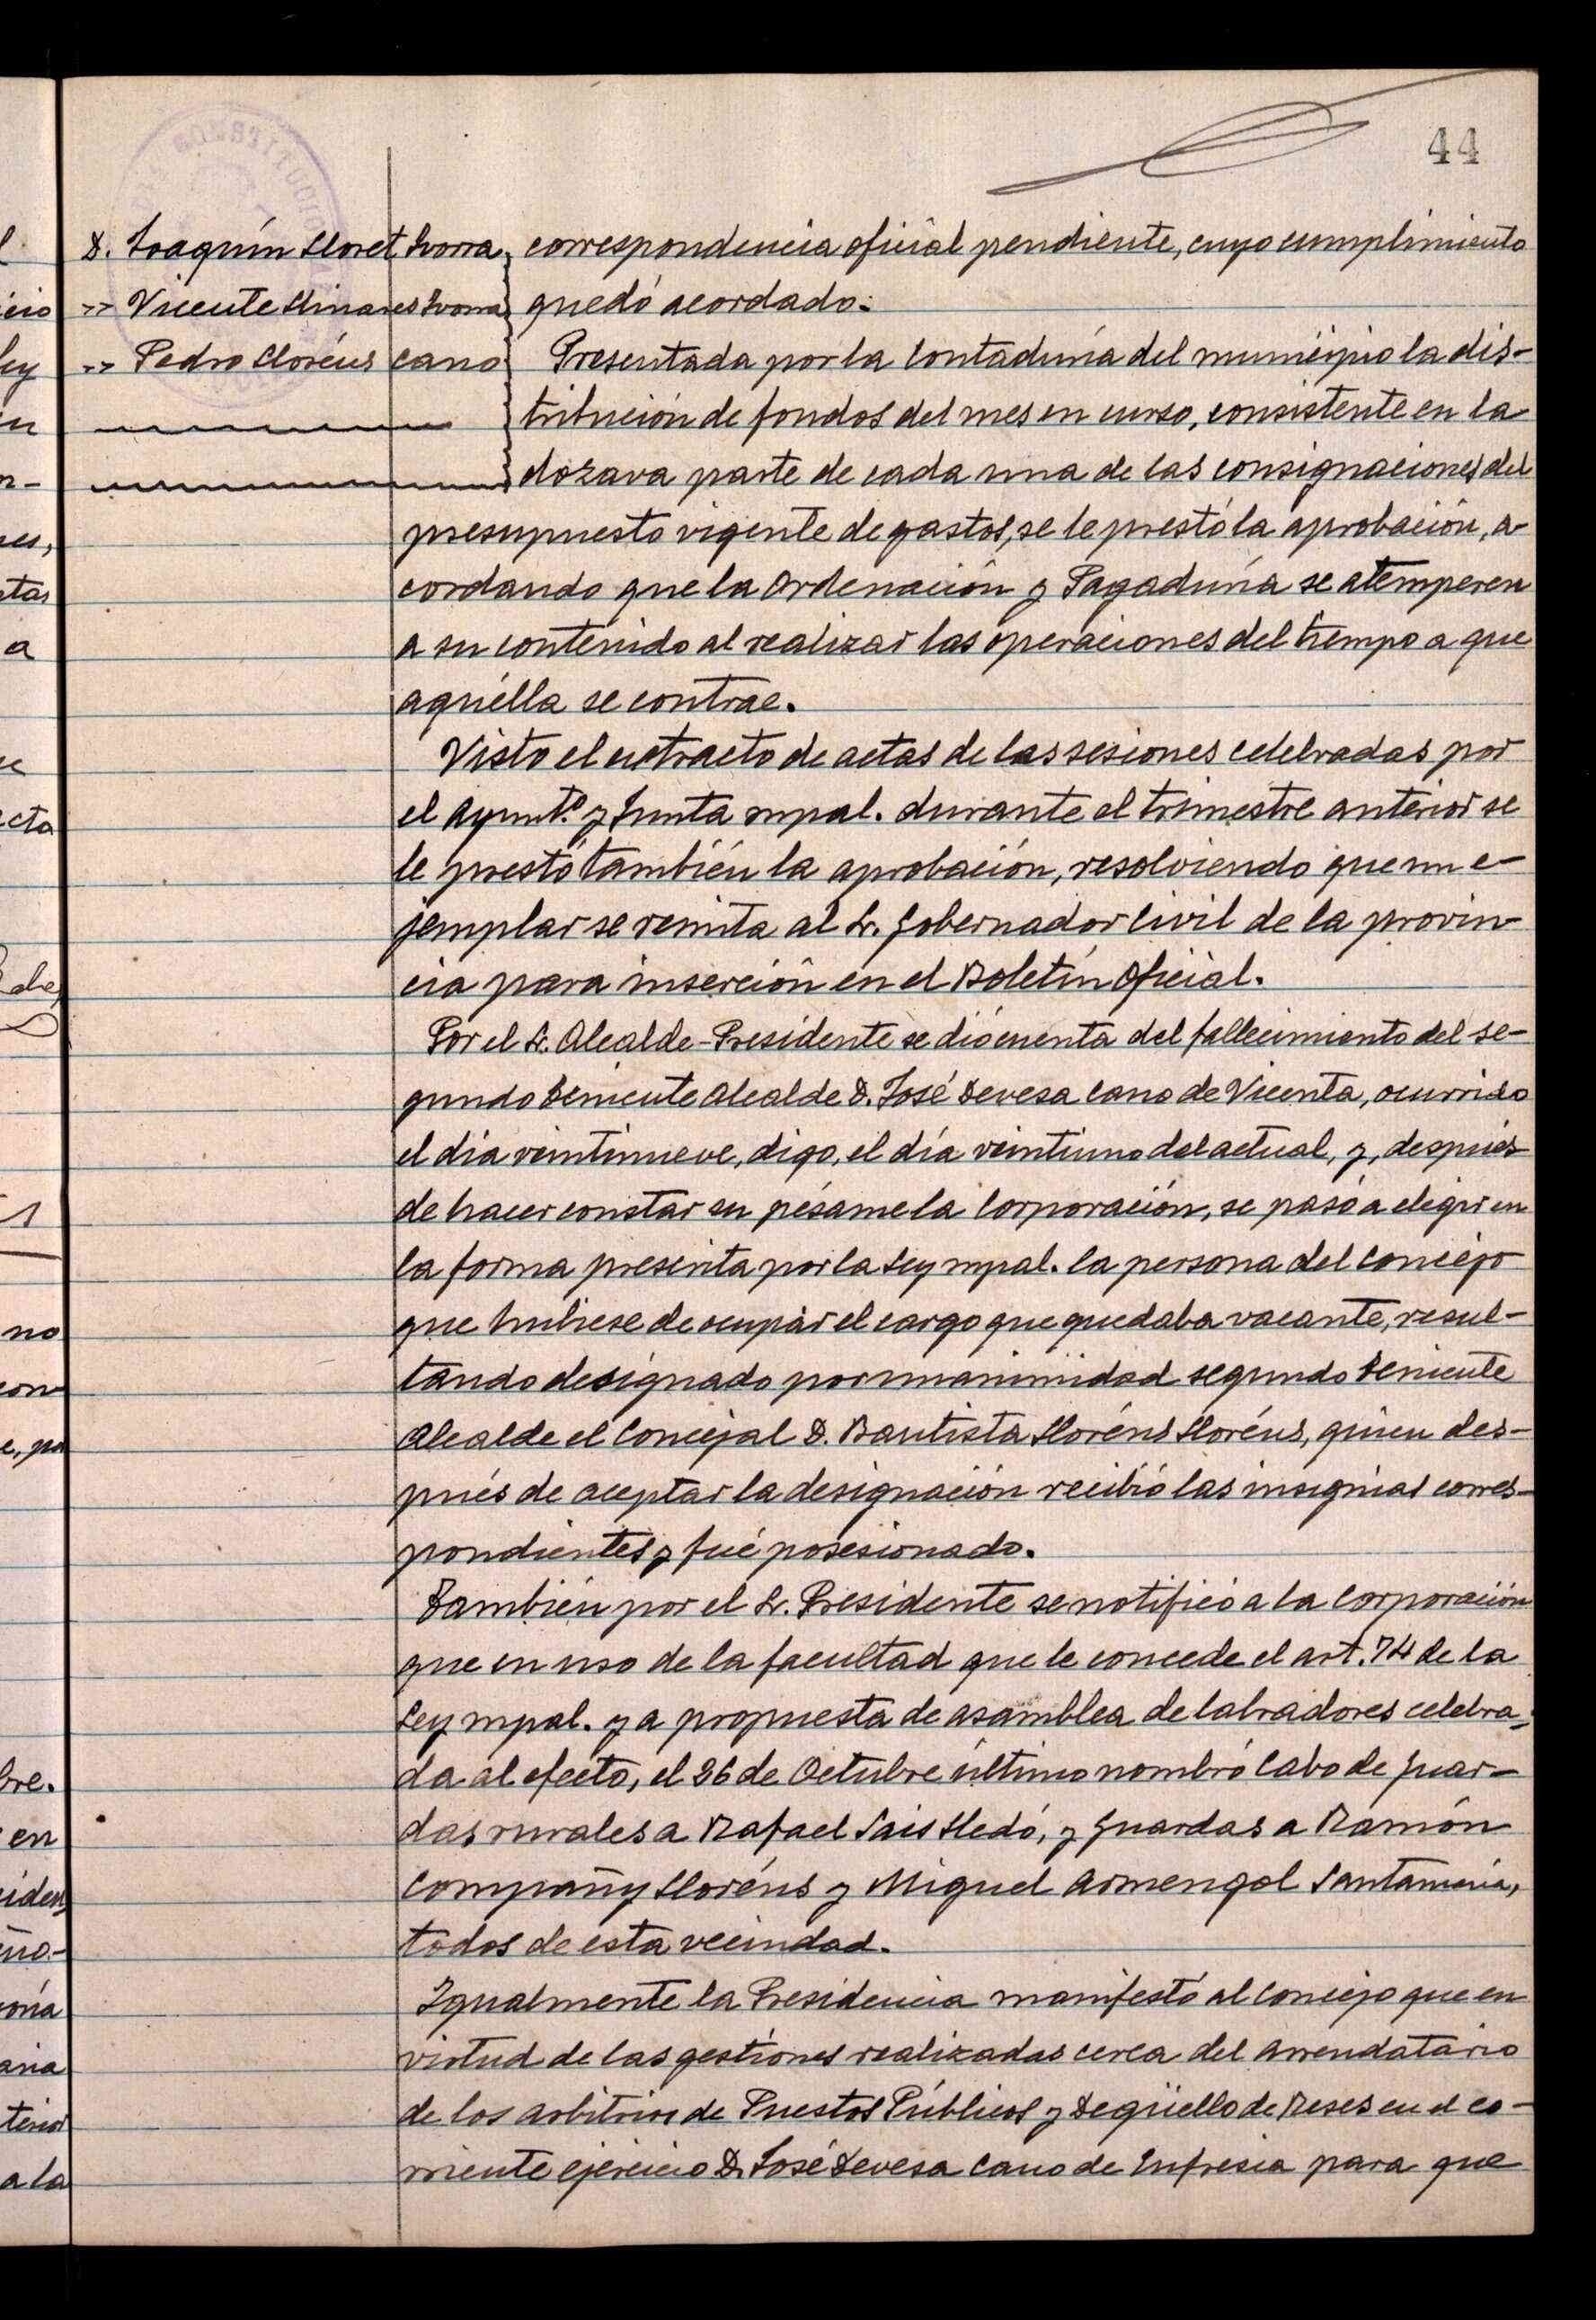 44
D. Joaquín Lloret Ivorra
>> Vicente Llinares Ivorra
>> Pedro Lloréns Cano
correspondencia oficial pendiente, cuyo cumplimiento
quedó acordado.
Presentada por la Contaduría del municipio la dis-
tribución de fondos del mes en curso, consistente en la
dozava parte de cada una de las consignaciones del
presupuesto vigente de gastos, se le prestó la aprobación, a-
cordando que la Ordenación y Pagaduría se atemperen
a su contenido al realizar las operaciones del tiempo a que
aquélla se contrae.
Visto el extracto de actas de las sesiones celebradas por
el Ayunt.º y Junta mpal. durante el trimestre anterior se
le prestó también la aprobación, resolviendo que un e-
jemplar se remita al Sr. Gobernador Civil de la provin-
cia para inserción en el Boletín Oficial.
Por el Sr. Alcalde-Presidente se dió cuenta del fallecimiento del se-
gundo Teniente Alcalde D. José Devesa Cano de Vicenta, ocurrido
el día veintinueve, digo, el día veintiuno del actual, y, después
de hacer constar su pésame la Corporación, se pasó a elegir en
la forma prescrita por la Ley mpal. la persona del Concejo
que hubiese de ocupar el cargo que quedaba vacante, resul-
tando designado por unanimidad segundo Teniente
Alcalde el Concejal D. Bautista Lloréns Lloréns, quien des-
pués de aceptar la designación recibió las insignias corres-
pondientes y fué posesionado.
También por el Sr. Presidente se notificó a la Corporación
que en uso de la facultad que le concede el art. 74 de la
Ley mpal. y a propuesta de asamblea de labradores celebra-
da al efecto, el 26 de Octubre último nombró Cabo de Guar-
das rurales a Rafael Sais Lledó, y Guardas a Ramón
Compañy Lloréns y Miguel Armengol Santamaría,
todos de esta vecindad.
Igualmente la Presidencia manifestó al Concejo que en
virtud de las gestiones realizadas cerca del Arrendatario
de los arbitrios de Puestos Públicos y Degüello de Reses en el co-
rriente ejercicio D. José Devesa Cano de Eufresia para que